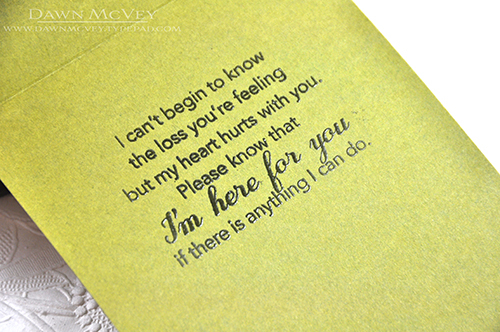 DAWN MCVEY
WWW.DAWNMCVEY.TYPEPAD.COM
I can't begin to know
the loss you're feeling
but my heart hurts with you.
Please know that
I'm here for you
if there is anything I can do.